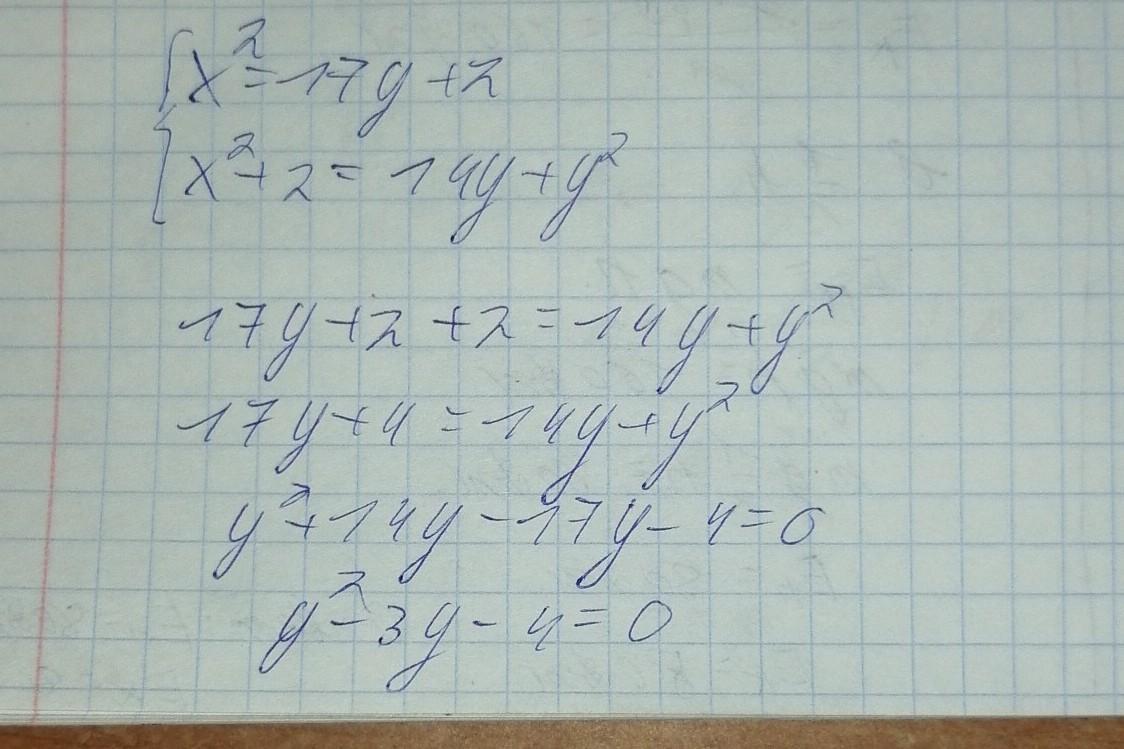 x² = 17y + 2
x² + 2 = 14y + y²
17y + 2 + 2 = 14y + y²
17y + 4 = 14y + y²
y² + 14y - 17y - 4 = 0
y² - 3y - 4 = 0